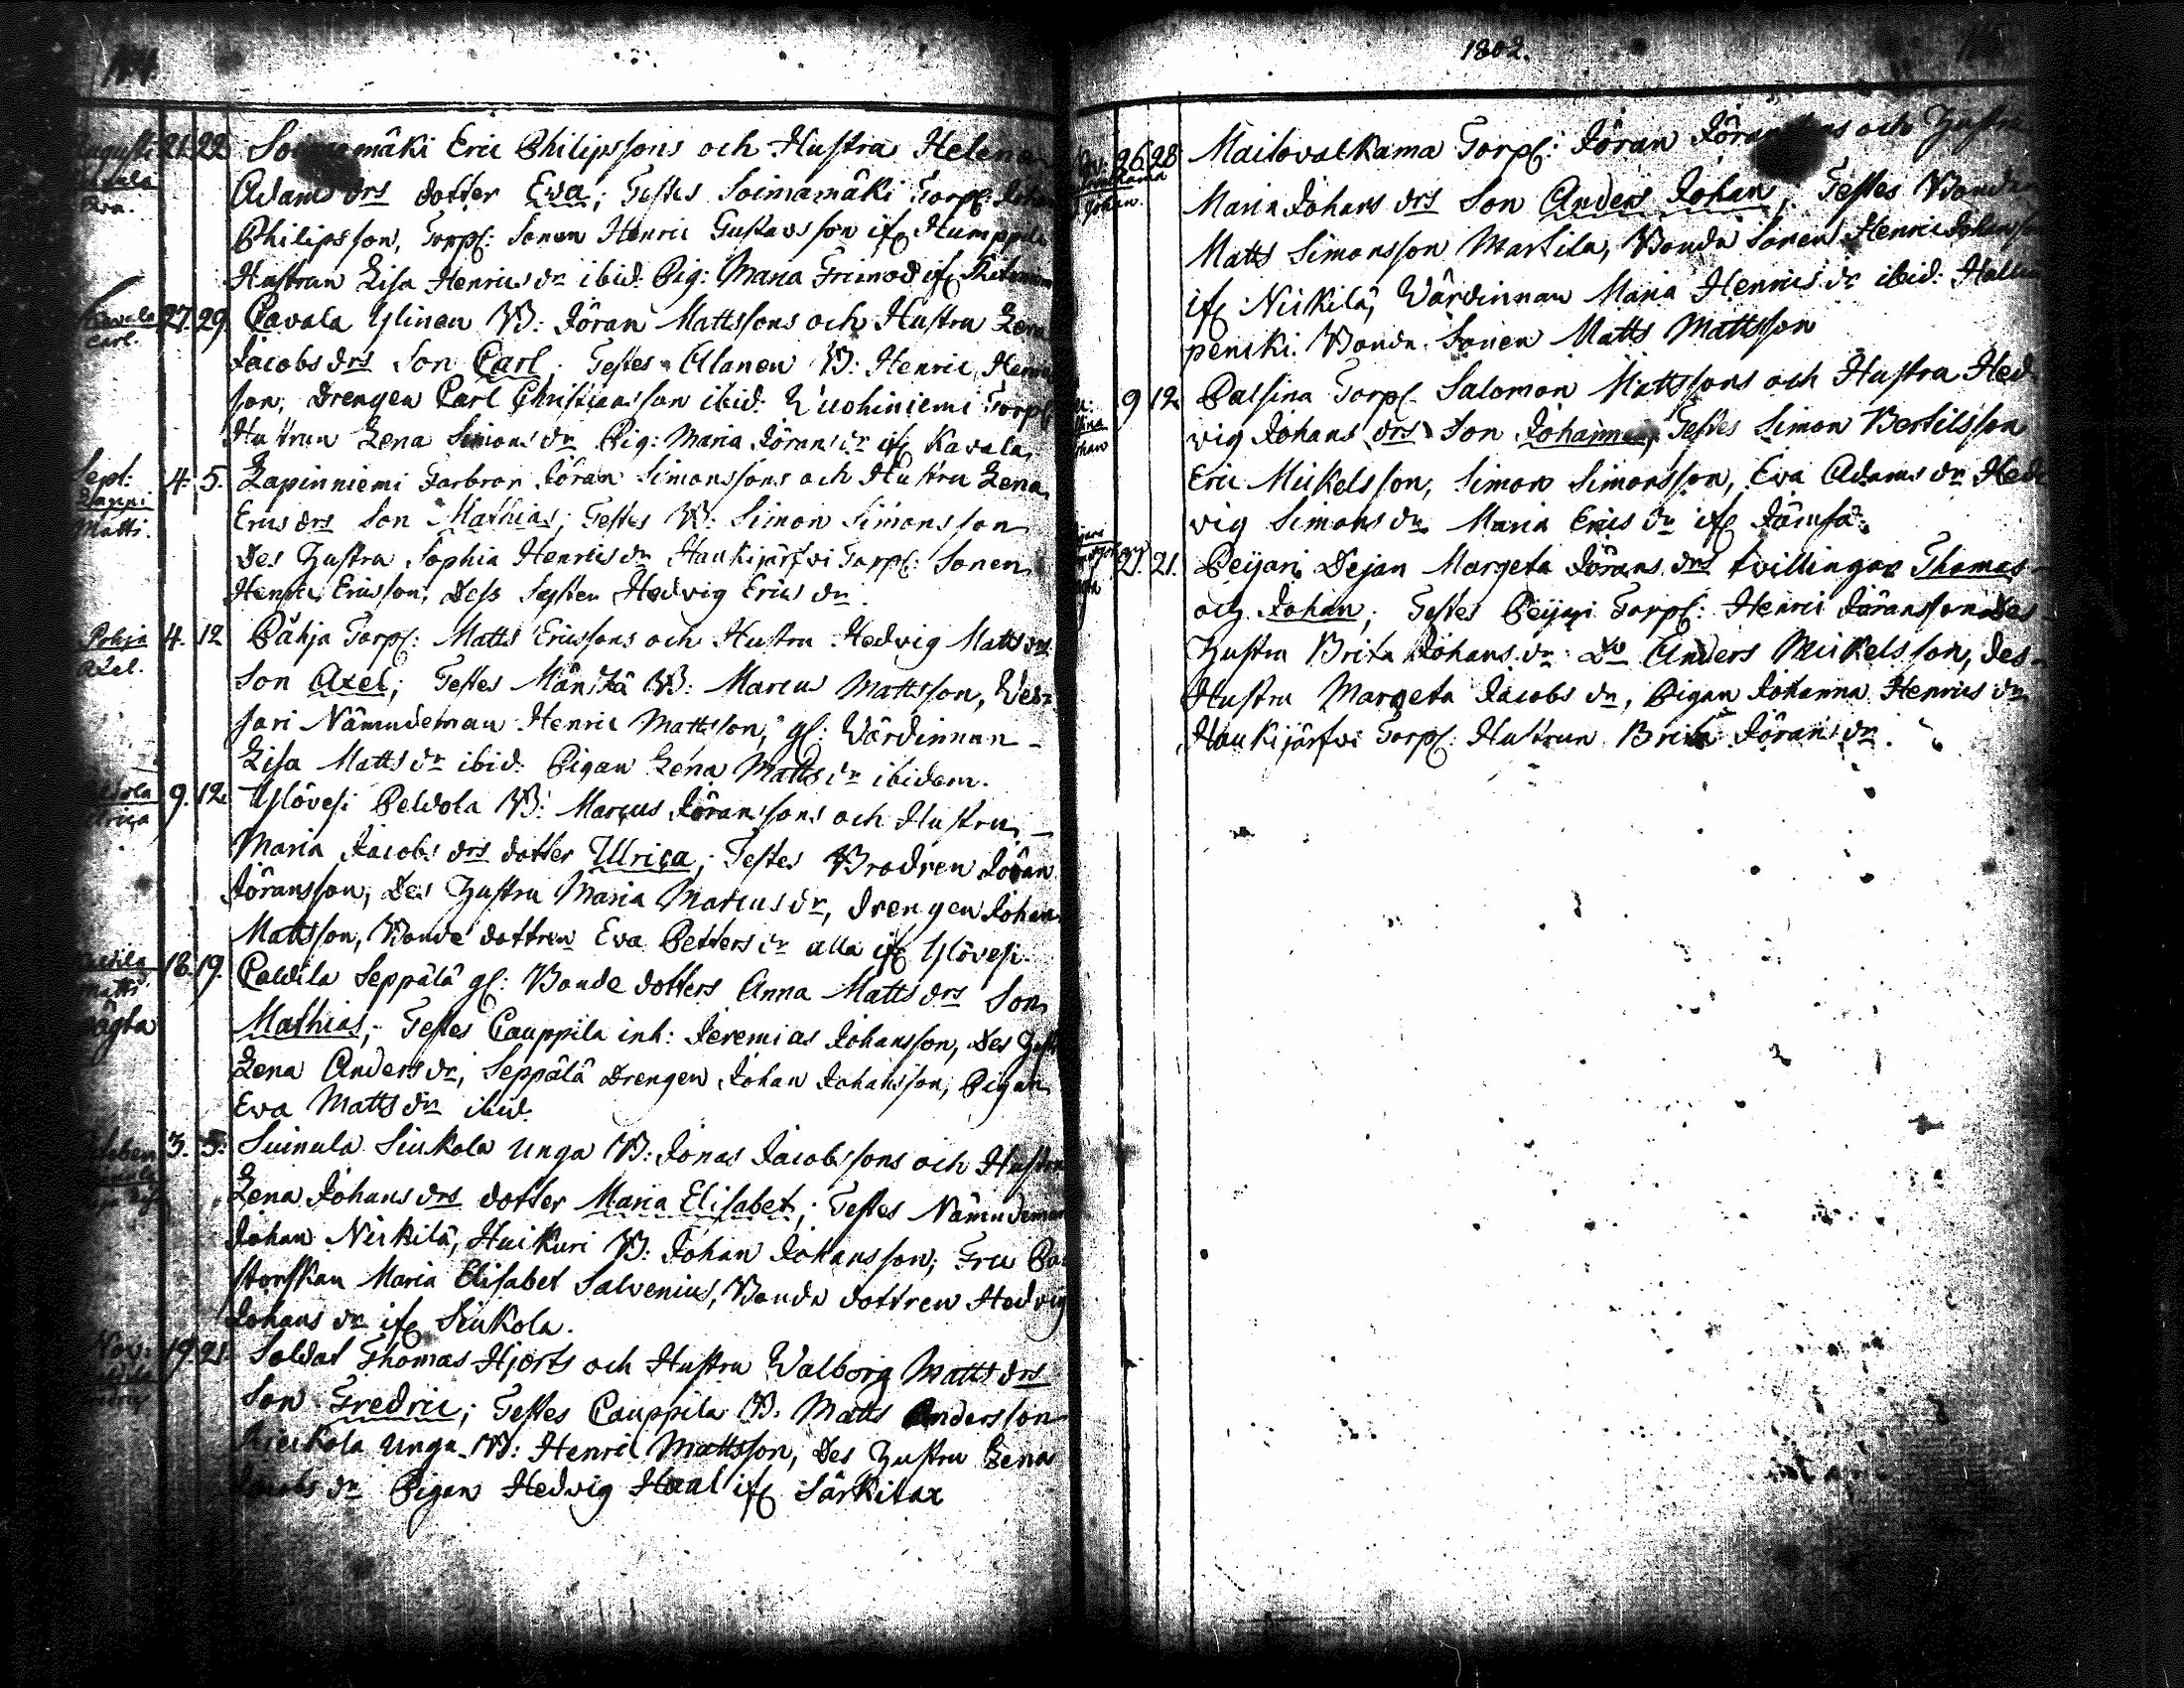 1802.
Augusti 21. 22. Soimamäki Eric Philipssons och Hustru Helena
Adams drs dotter Eva; Testes Soimamäki Torp: Johan
Eva.
Philipsson, Torp: Sonen Henric Gustavsson if: Humppila
Hustrun Lisa Henrics dr ibid. Pig: Maria Freimod if:
Kavala Carl. 27. 29. Cavala Ylinen B: Jöran Mattssons och Hustru Lena
Jacobs drs Son Carl; Testes Alanen B: Henric Henric
son, drengen Carl Christiansson ibid. Wuohiniemi Torp:
Hustrun Lena Simons dr Pig: Maria Jörans dr if: Kavala.
Sept: Lappi Matti. 4. 5. Lapinniemi Farbror Jöran Simonssons och Hustru Lena
Erics drs Son Mathias; Testes B: Simon Simonsson
Des Hustru Sophia Henrics dr Haukijärfvi Torp: Sonen
Henric Ericsson, Dess Syster Hedvig Erics dr.
Pohja Axel. 4. 12 Påhja Torp: Matts Ericssons och Hustru Hedvig Matts drs
Son Axel; Testes Mäntä B: Marcus Mattsson, Wes-
jari Nämndeman Henric Mattsson, gl: Wärdinnan
Lisa Matts dr ibid. Pigan Lena Matts dr ibidem.
Ulrica 9. 12. Ylövesi Peldola B: Marcus Jöranssons och Hustru
Maria Jacobs drs dotter Ulrica; Testes Brodren Jöran
Jöransson, Des Hustru Maria Marcus dr, drengen Johan
Mattsson, Bonde dottren Eva Petters dr alla if: Ylövesi.
Matti oägta 18. 19. Caldila Seppälä gl: Bonde dotters Anna Matts drs Son
Mathias; Testes Cauppila inh: Jeremias Johansson, Des Hust
Lena Anders dr, Seppälä Drengen Johan Johansson, Pigan
Eva Matts dr ibid.
October 3. 5. Suinula Siukola Unga B: Jonas Jacobssons och Hustru
Lena Johans drs dotter Maria Elisabet; Testes Nämndeman
Johan Neikilä, Huikuri B: Johan Johansson, Fru Pa-
storskan Maria Elisabet Salvenius, Bonde dottren Hedvig
Johans dr if: Siukola.
Nov: 19. 21. Soldat Thomas Hjorts och Hustru Walborg Matts drs
Son Fredric; Testes Cauppila B: Matts Andersson
Unga B: Henric Mattsson, Des Hustru Lena
Jacobs dr Pigan Hedvig Haal if: Särkilax
Johan. 26. 28 Maitovalkama Torp: Jöran Jöranssons och Hustru
Maria Johans drs Son Anders Johan; Testes Bonden
Matts Simonsson Martila, Bonde Sonen Henric Johansson
if: Neikilä, Wärdinnan Maria Henrics dr ibid: Hallin
peniki. Bonde Sonen Matts Mattsson
9 12. Palsina Torp: Salomon Mattssons och Hustru Hed-
vig Johans drs Son Johannes; Testes Simon Bertilsson
Eric Mickelsson, Simon Simonsson, Eva Adams dr Hed-
vig Simons dr Maria Erics dr if: Jämsä.
21. 21. Peijari Dejan Margeta Jörans drs tvillingar Thomas
och Johan; Testes Peijari Torp: Henric Jöransson Des
Hustru Brita Johans dr Do Anders Mickelsson, des
Hustru Margeta Jacobs dr, Pigan Johanna Henrics dr
Haukijärfvi Torp: Hustrun Brita Jörans dr.